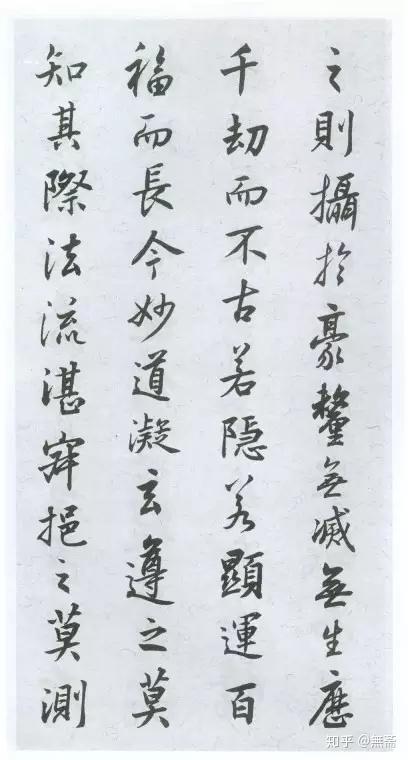 之則攝於豪釐無滅無生歷
千劫而不古若隱若顯運百
福而長今妙道凝玄遵之莫
知其際法流湛寂挹之莫測
知乎 @無斋